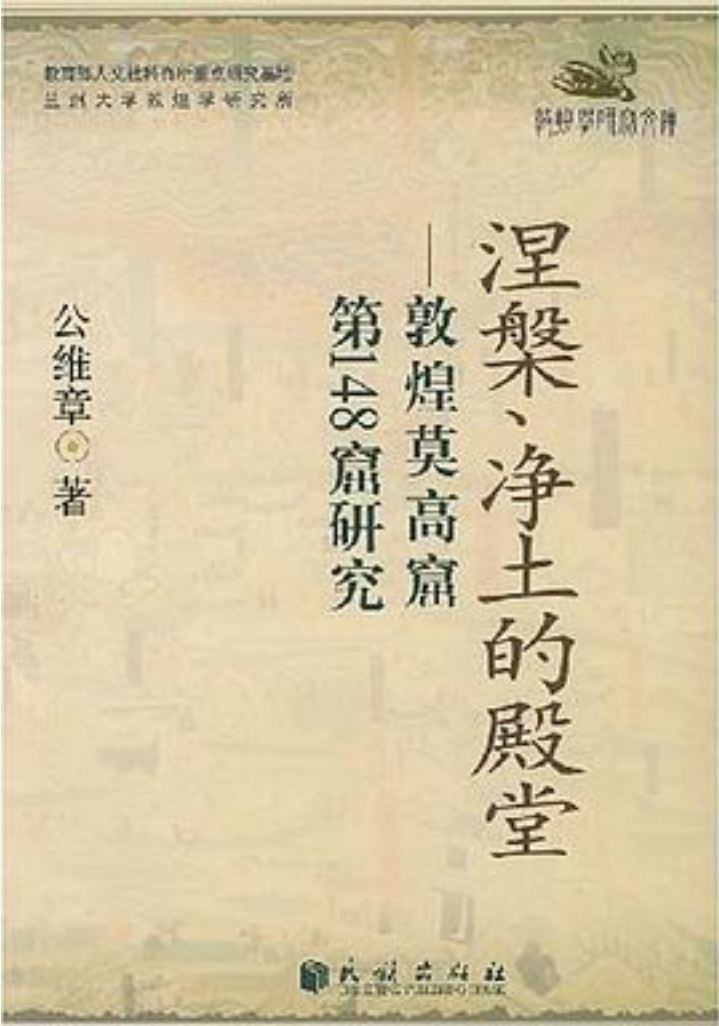 教育部人文社科百所重点研究基地
兰州大学敦煌学研究所
敦煌学研究文库
涅槃、净土的殿堂
——敦煌莫高窟
第148窟研究
公维章 著
民族出版社